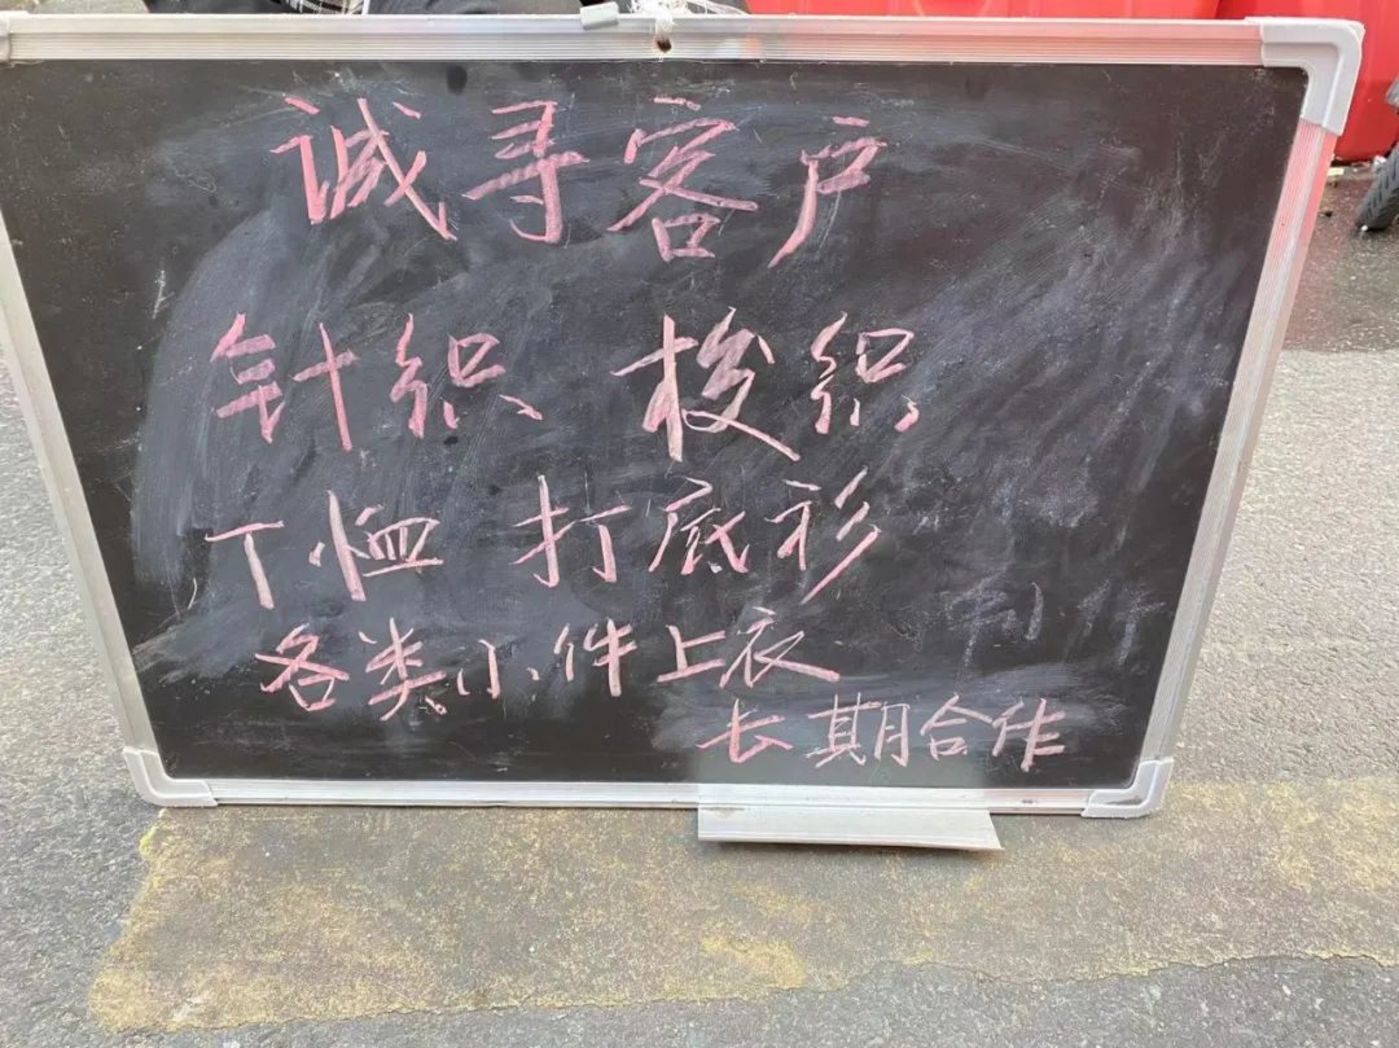 诚寻客户
针织 梭织
T恤 打底衫
各类小件上衣
长期合作